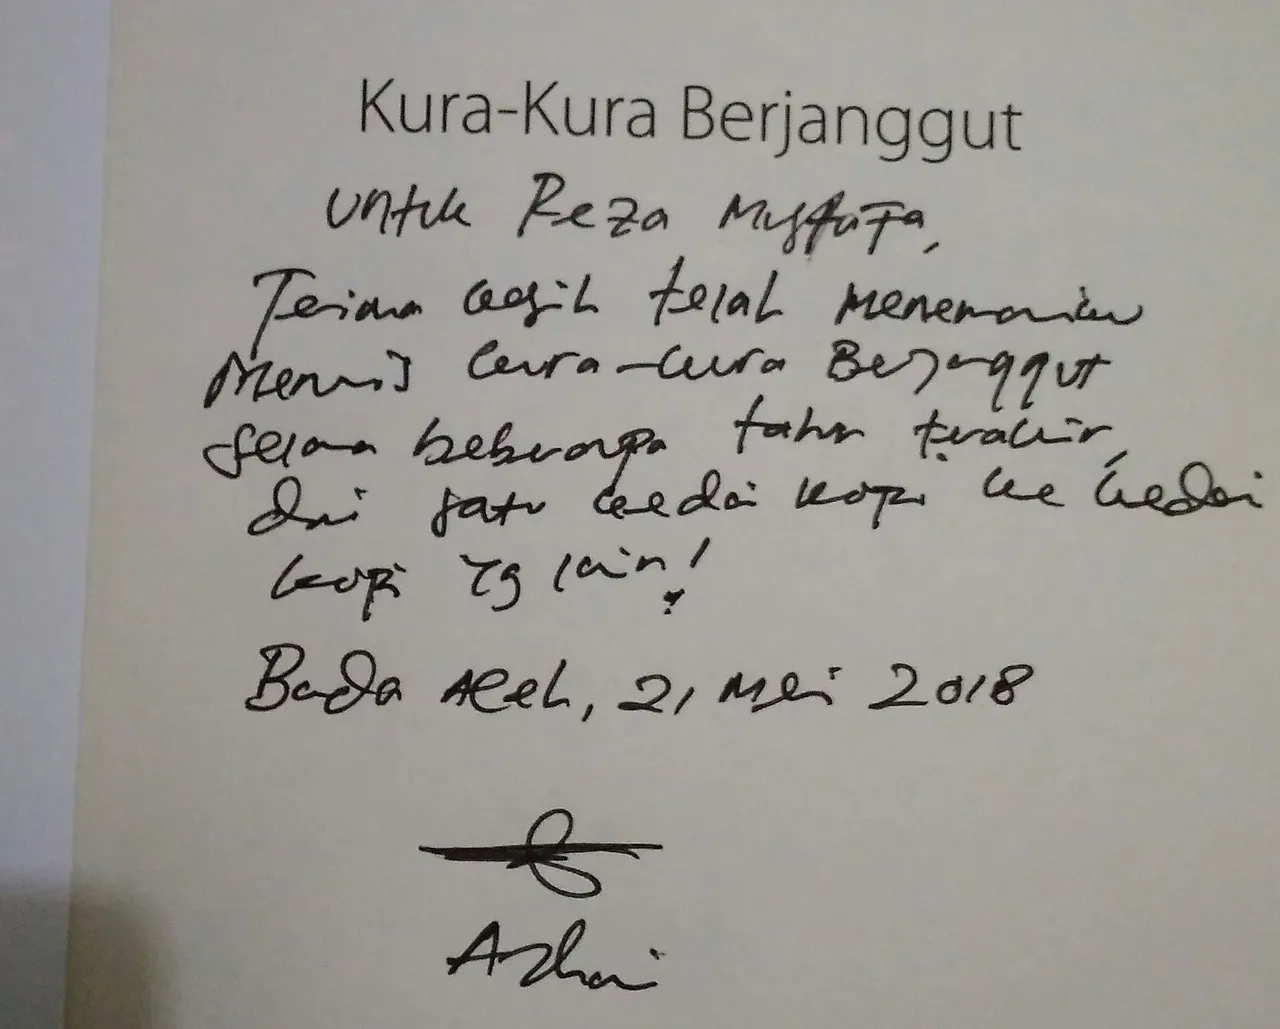 Kura-Kura Berjanggut
Untuk Reza Mustafa,
Terima kasih telah menemaniku
Menulis Kura-kura Berjanggut
selama beberapa tahun terakhir,
dari satu kedai kopi ke kedai
kopi yg lain!
Banda Aceh, 21 Mei 2018
Azhari